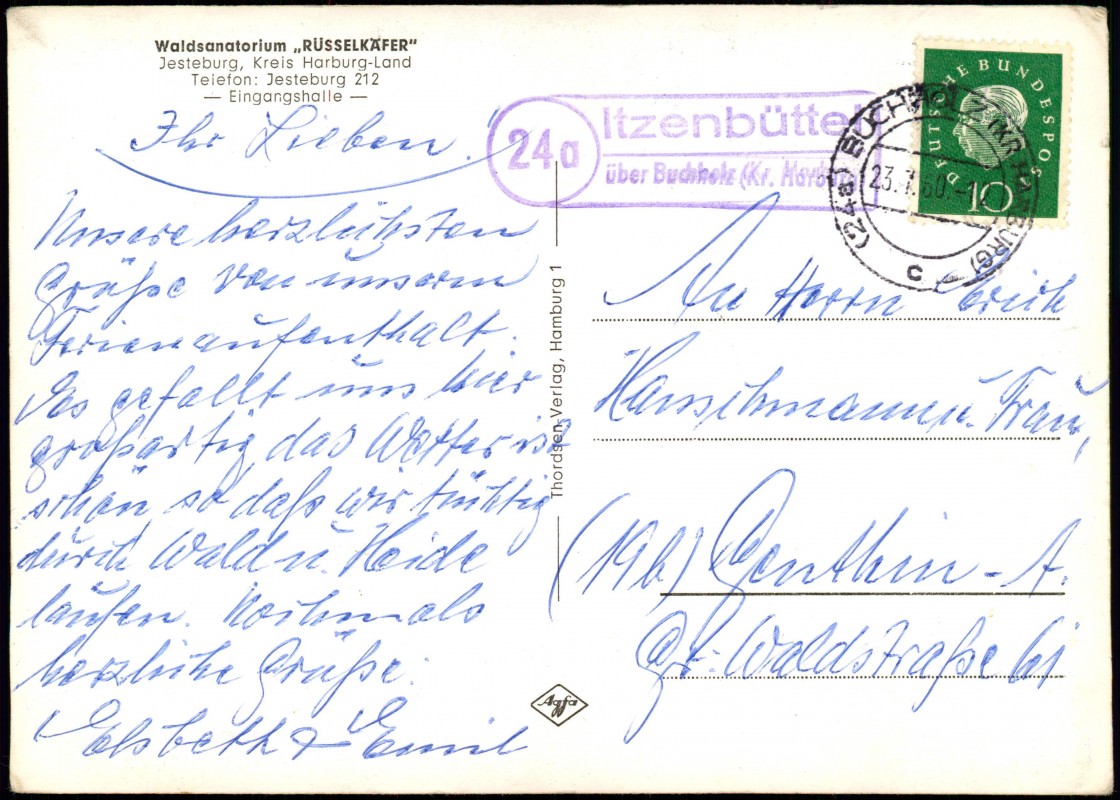 Waldsanatorium „RÜSSELKÄFER"
Jesteburg, Kreis Harburg-Land
Telefon: Jesteburg 212
— Eingangshalle —
Ihr Lieben!
Unsere herzlichsten
Grüße von unserm
Ferienaufenthalt.
Es gefällt uns hier
großartig, das Wetter ist
schön, so daß wir tüchtig
durch Wald u. Heide
laufen. Nochmals
herzliche Grüße.
Elsbeth & Emil
Thordsen-Verlag, Hamburg 1
Agfa
24a
Itzenbüttel
über Buchholz (Kr. Harburg)
(24a) BUCHHOLZ (KR HARBURG)
60
c
DEUTSCHE BUNDESPOST
10
An Herrn Erich
u. Frau,
(19b) Genthin-A.
Gr. Waldstraße